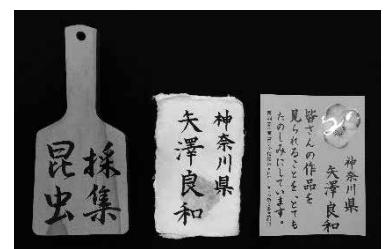 採集
昆虫
神奈川県
矢澤良和
神奈川県
矢澤良和
皆さんの作品を
見られることを、とても
たのしみにしています。